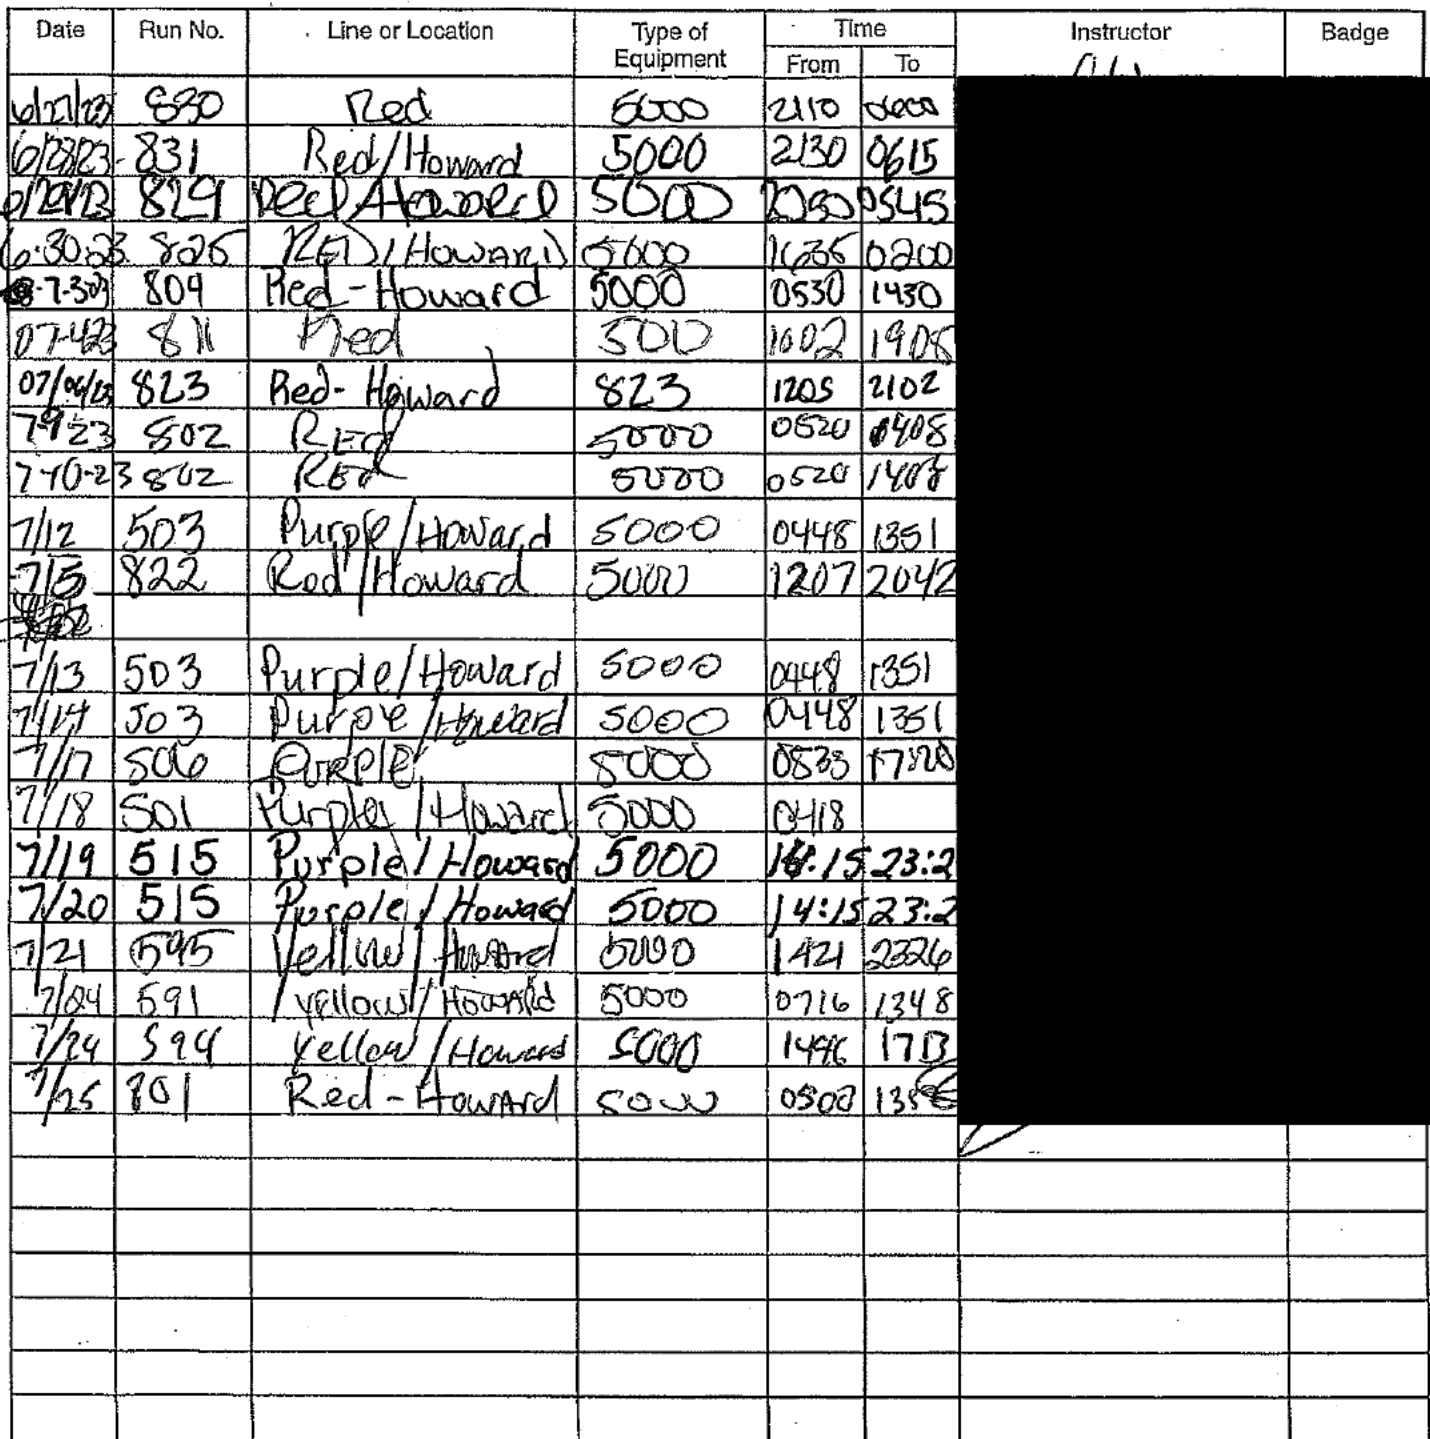 Date Run No. Line or Location Type of Equipment Time From To Instructor Badge
6/27/23 830 Red 5000 2110 0600
6/28/23 831 Red/Howard 5000 2130 0615
6/29/23 829 Red/Howard 5000 0545
6.30.23 825 RED/HOWARD 5000 1635 0200
7-3-23 809 Red-Howard 5000 0530 1430
07-4-23 811 Red 500 1002 1908
07/06/23 823 Red-Howard 823 1205 2102
7-9-23 802 RED 5000 0520 0408
7-10-23 802 RED 5000 0520 1408
7/12 503 Purple/Howard 5000 0448 1351
7/5 822 Red/Howard 5000 1207 2042
7/13 503 Purple/Howard 5000 0448 1351
7/14 503 Purple/Howard 5000 0448 1351
7/17 506 PURPLE 5000 0833 1720
7/18 501 Purple/Howard 5000 0418
7/19 515 Purple/Howard 5000 14:15 23:2
7/20 515 Purple/Howard 5000 14:15 23:2
7/21 595 Yellow/Howard 5000 1421 2326
7/24 591 Yellow/Howard 5000 0716 1348
7/24 594 Yellow/Howard 5000 1713
7/25 801 Red-Howard 5000 0500